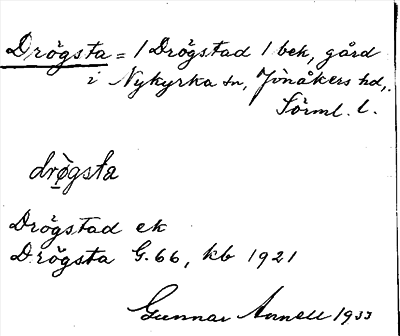 Drögsta = 1 Drögstad 1 bek, gård
i Nykyrka sn, Jönåkers hd,
Sörml. l.
drö̀gsta
Drögstad ek
Drögsta G. 66, kb 1921
Gunnar Annell 1933